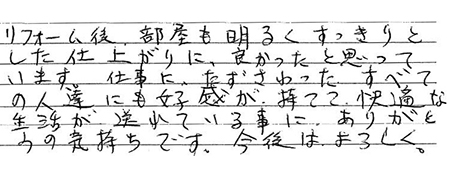 リフォーム後、部屋も明るくすっきりと
した仕上がりに、良かったと思って
います。仕事に、たずさわった、すべて
の人達にも好感が、持てて、快適な
生活が、送れている事に、ありがと
うの気持ちです。今後は、よろしく。